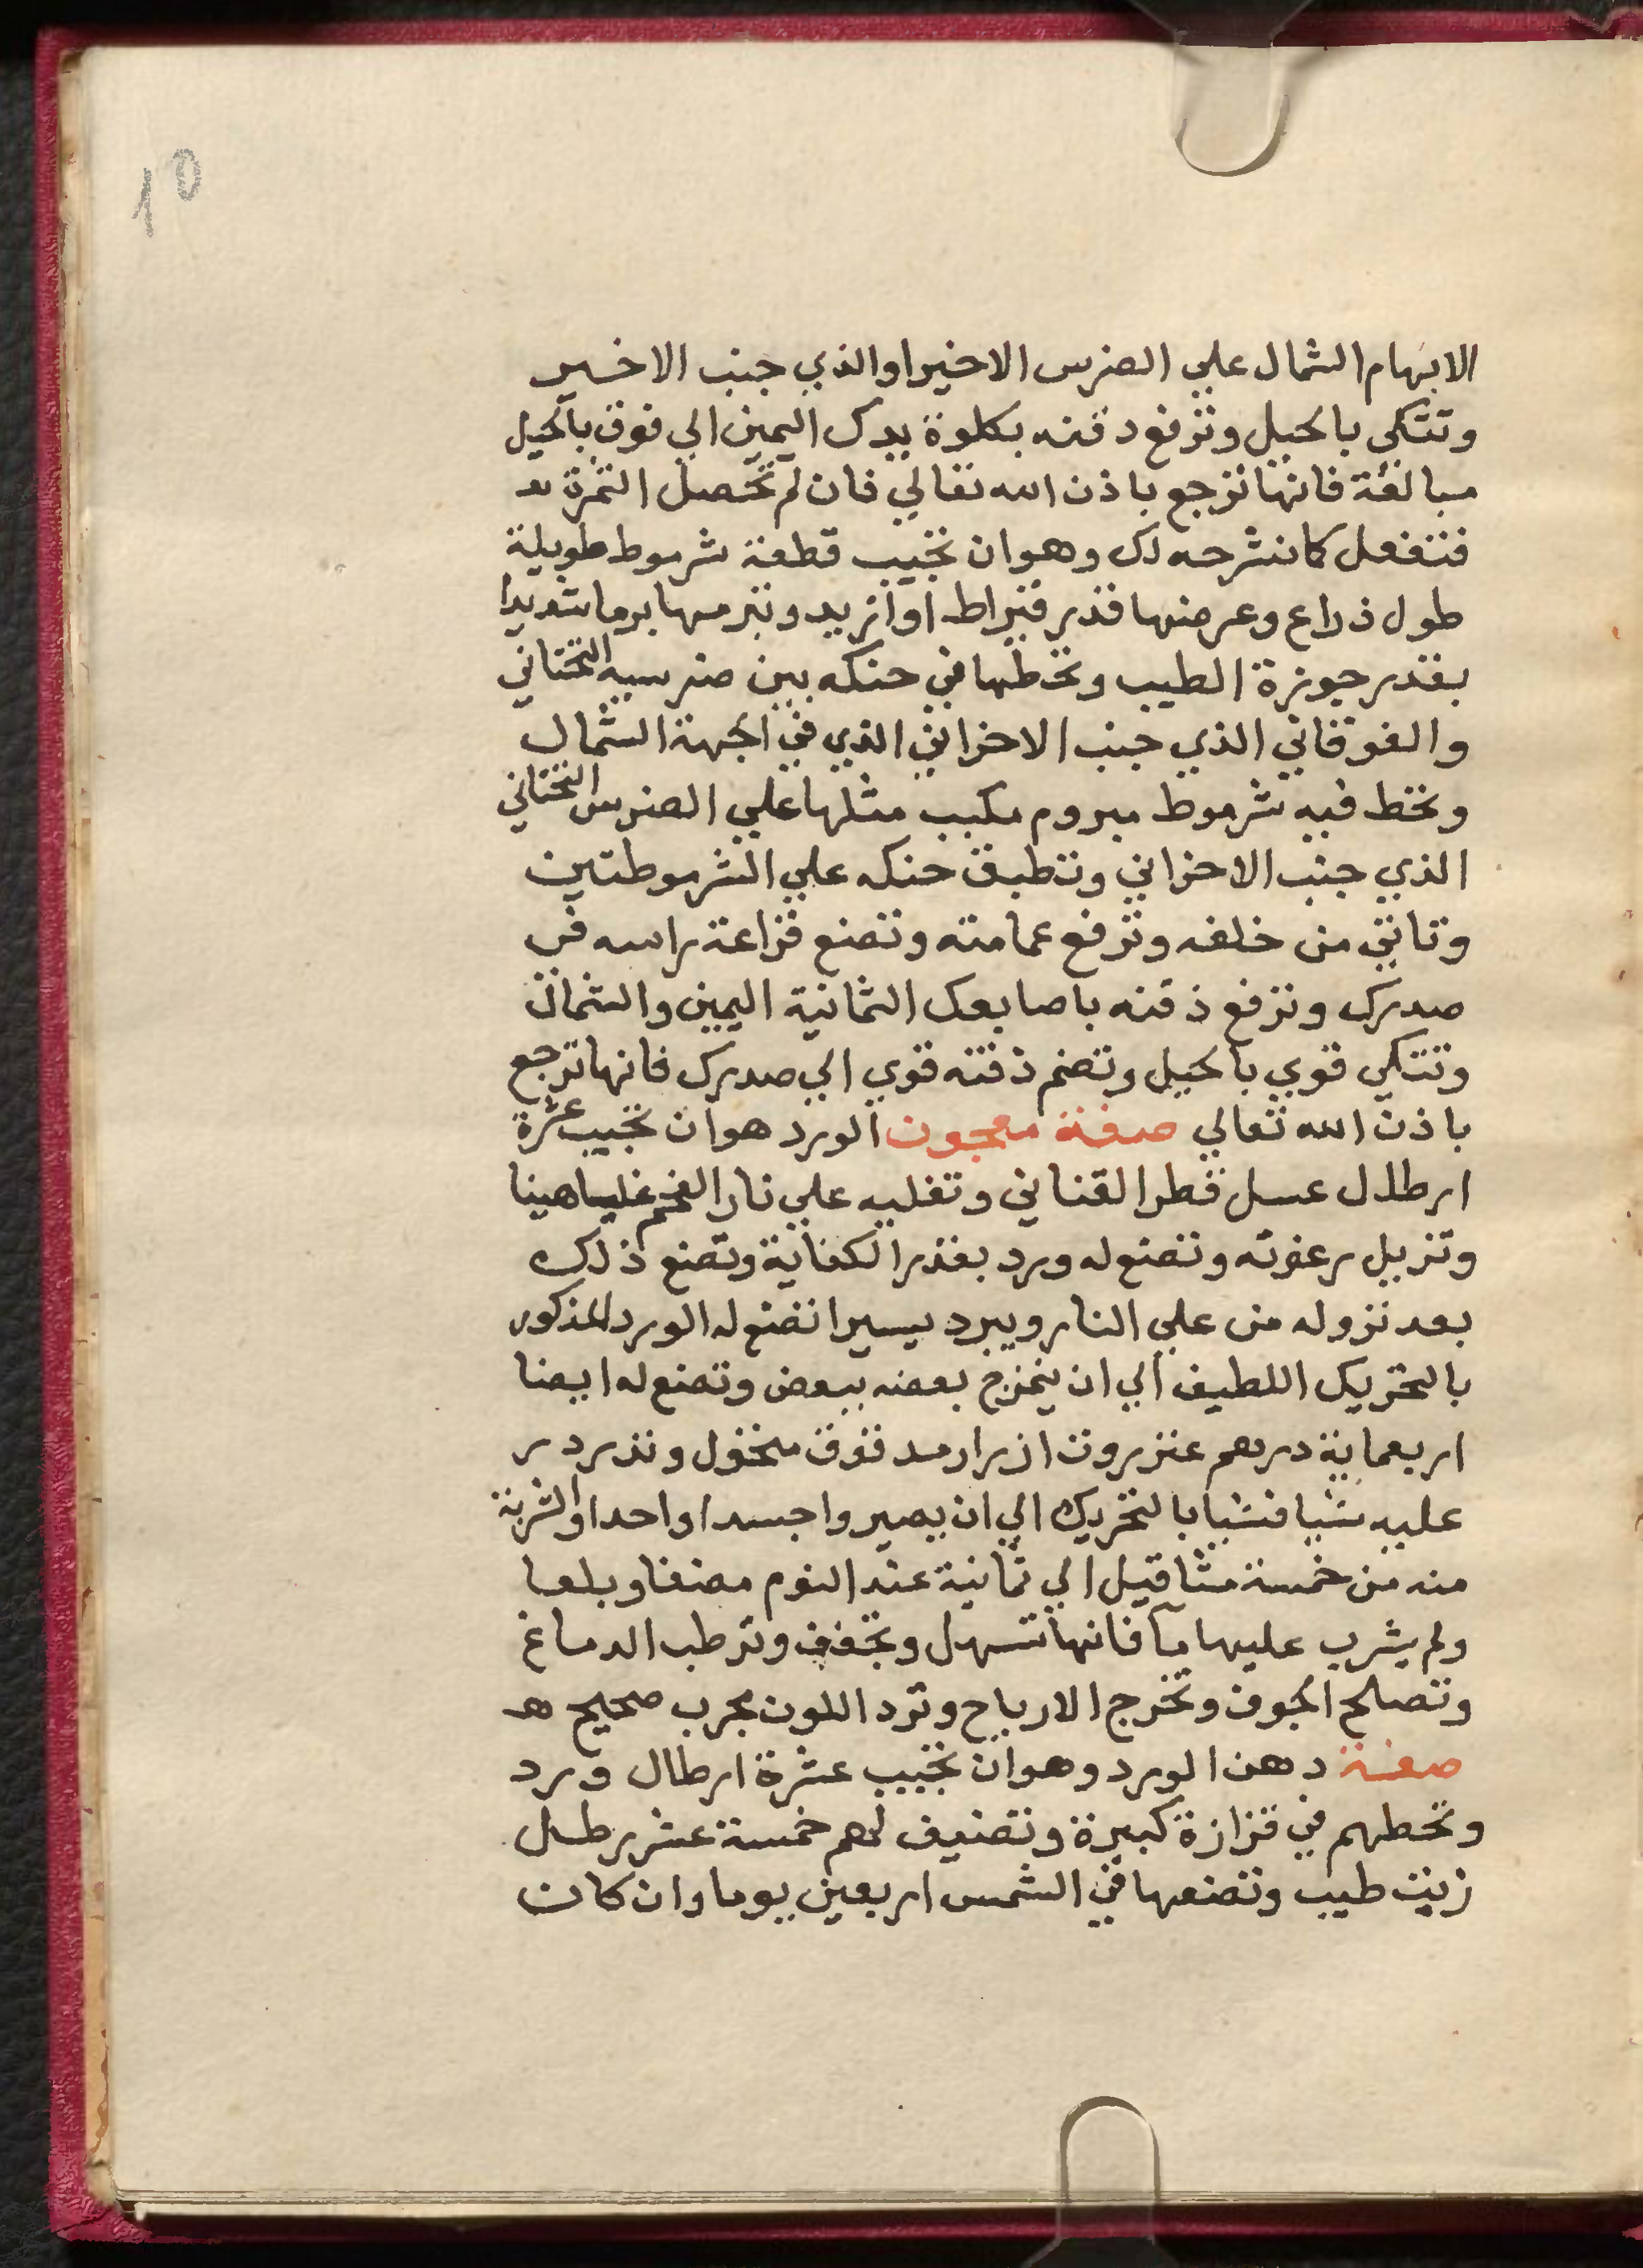 10
الابهام الشمال علي الضرس الاخير او الذي جنب الاخير
وتتكي بالحيل وترفع دقنه بكلوة يدك اليمين الي فوق بالحيل
مبالغة فانها ترجع باذن الله تعالي فان لم تحصل الثمرة
فتفعل كما نشرحه لك وهو ان تجيب قطعة شرموط طويلة
طول ذراع وعرضها قدر قيراط او ازيد وتبرمها برما شديدا
بقدر جوزة الطيب وتحطها في حنكه بين ضرسيه التحتاني
والفوقاني الذي جنب الاخراني الذي في الجهة الشمال
وتحط فيه شرموط مبروم مكبب مثلها علي الضرس التحتاني
الذي جنب الاخراني وتطبق حنكه علي الشرموطتين
وتاتي من خلفه وترفع عمامته وتضع قزاعة راسه في
صدرك وترفع ذقنه باصابعك الثمانية اليمين والشمال
وتتكي قوي بالحيل وتضم ذقنه قوي الي صدرك فانها ترجع
باذن الله تعالي صفة معجون الورد هو ان تجيب عشرة
ارطال عسل قطر القناني وتغليه علي نار الفحم غليا هينا
وتزيل رغوته وتضع له ورد بقدر الكفاية وتضع ذلك
بعد نزوله من علي النار ويبرد يسيرا تضع له الورد المذكور
بالتحريك اللطيف الي ان يمزج بعضه ببعض وتضع له ايضا
اربعماية درهم عنزروت ازرار مدقوق منخول وتذردر
عليه شيا فشيا بالتحريك الي ان يصيروا جسدا واحدا والشربة
منه من خمسة مثاقيل الي ثمانية عند النوم مضغا وبلعا
ولم يشرب عليها مآ فانها تسهل وتجفف وترطب الدماغ
وتصلح الجوف وتخرج الارياح وترد اللون مجرب صحيح
صفة دهن الورد وهو ان تجيب عشرة ارطال ورد
وتحطهم في قزازة كبيرة وتضيف لهم خمسة عشر رطل
زيت طيب وتضعها في الشمس اربعين يوما وان كان